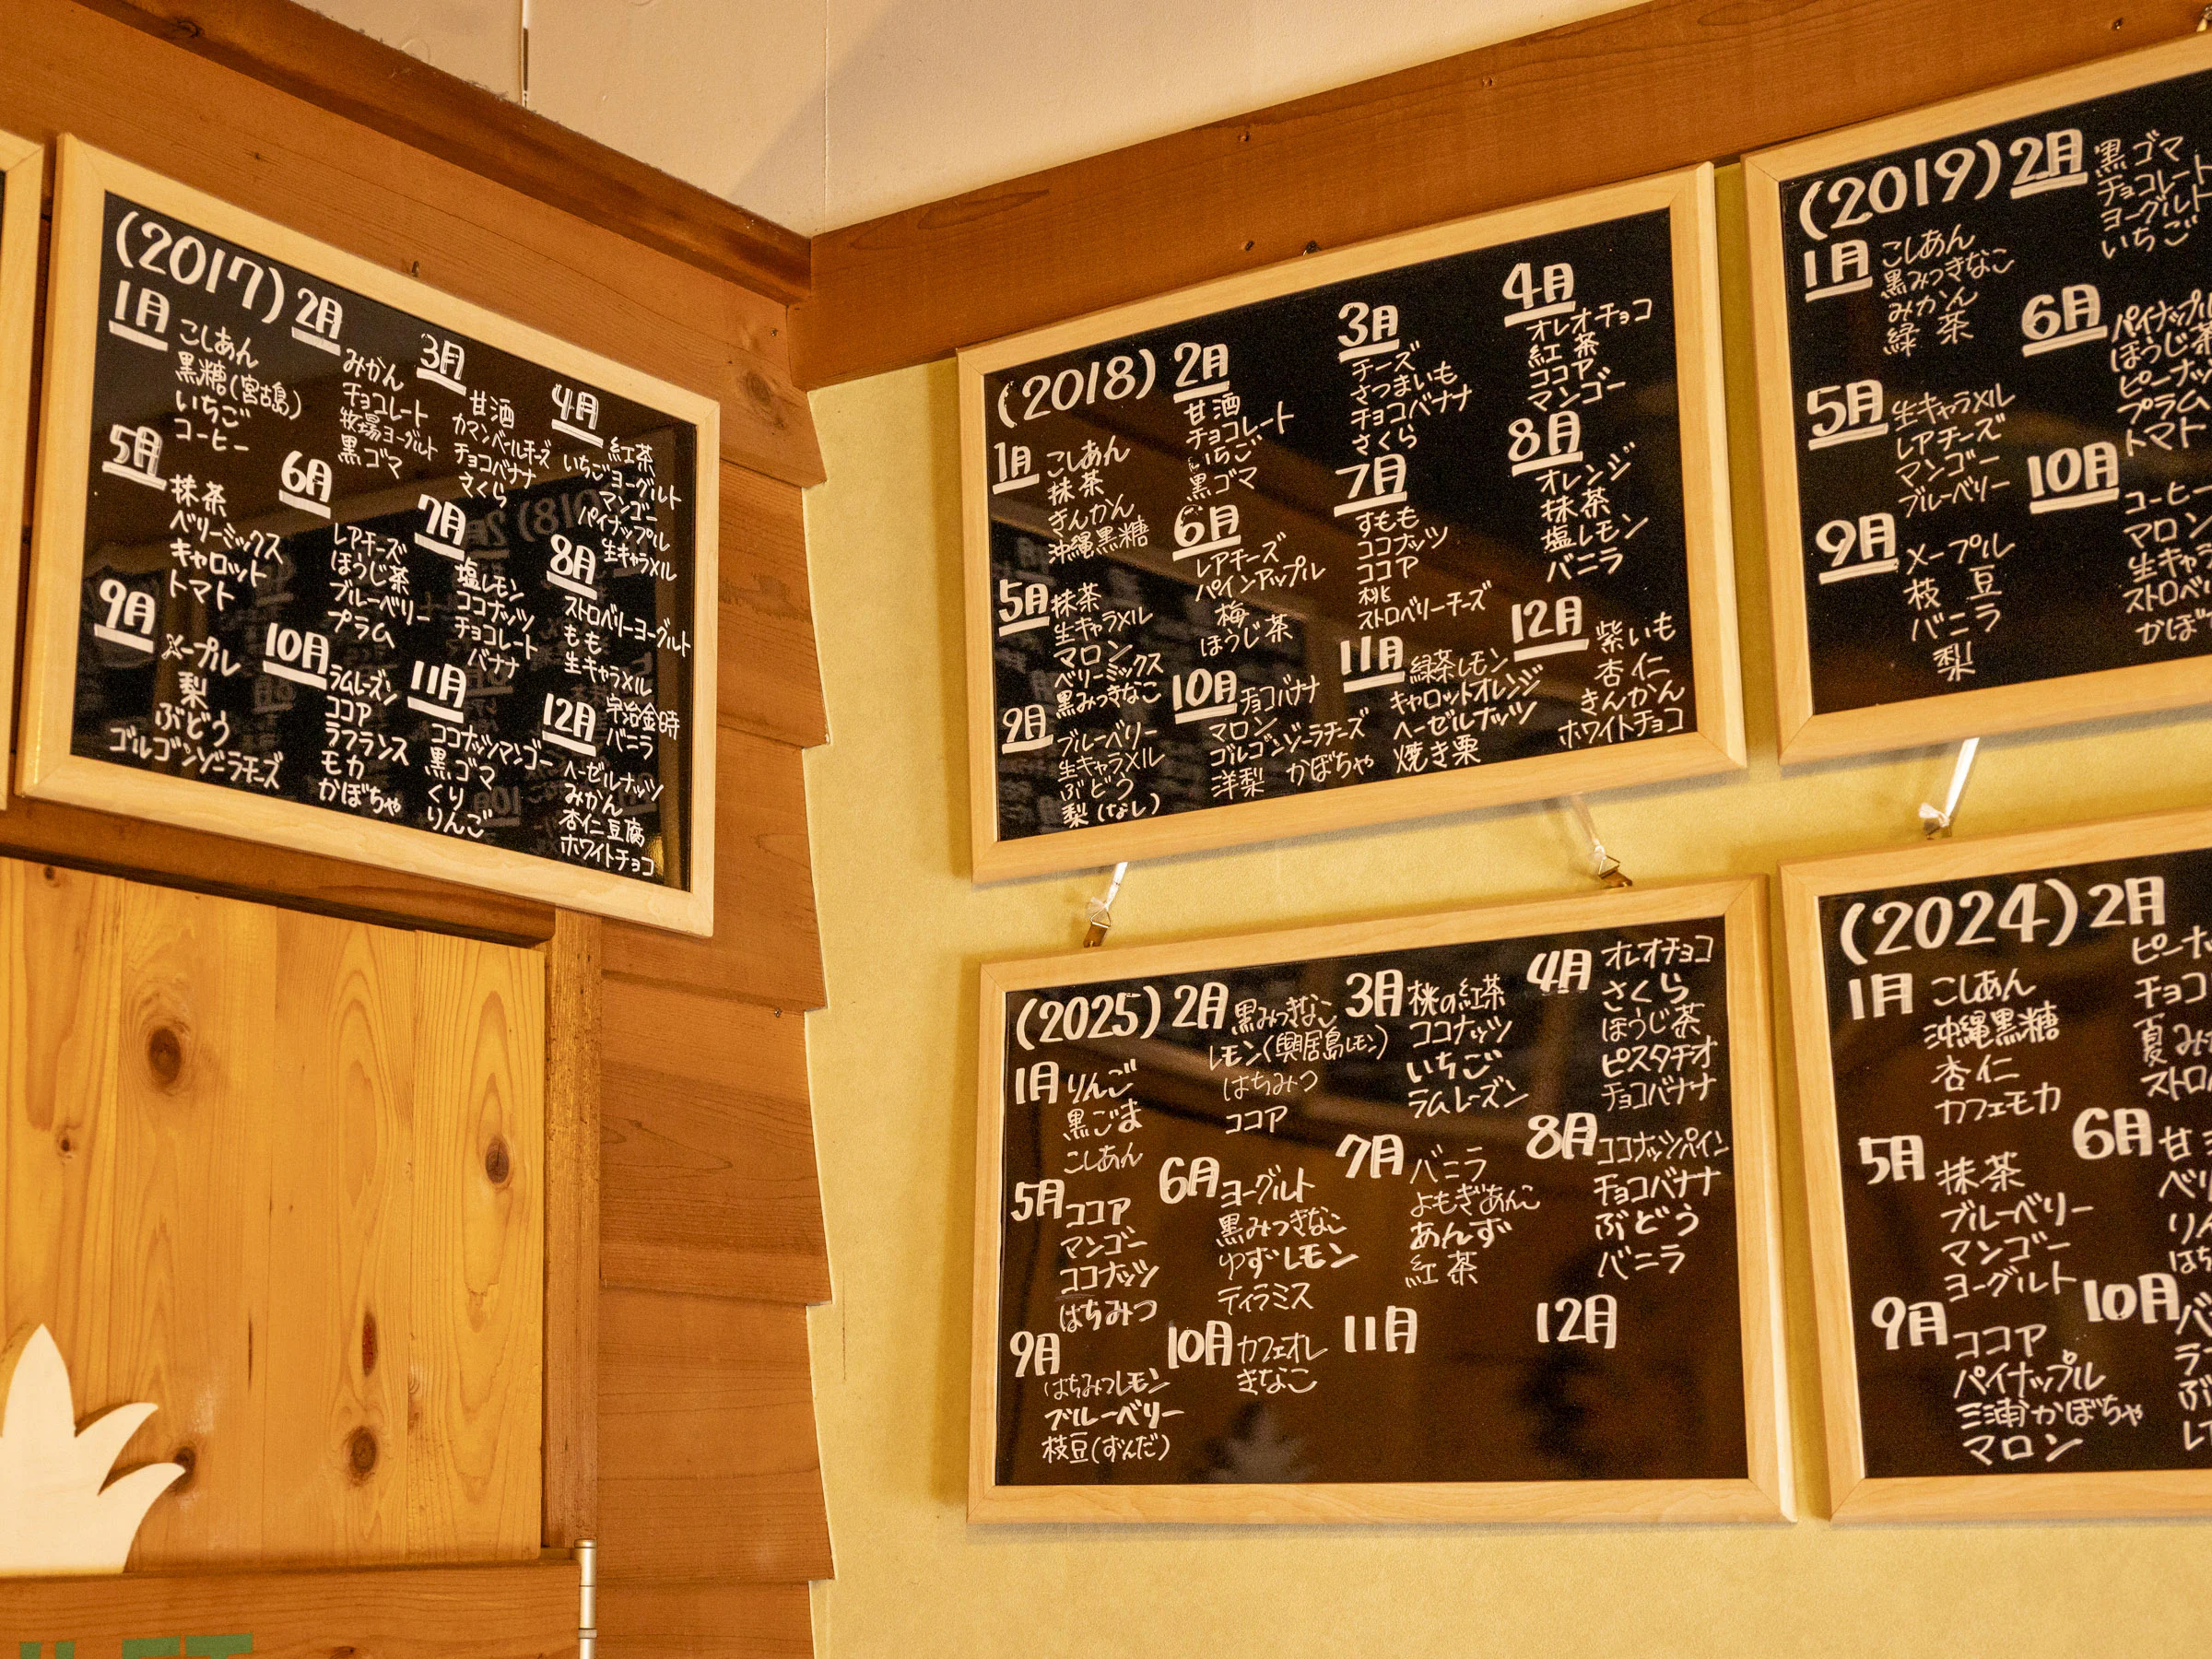 (2017)
1月
こしあん
黒糖(宮古島)
いちご
コーヒー
2月
みかん
チョコレート
牧場ヨーグルト
黒ゴマ
3月
甘酒
カマンベールチーズ
チョコバナナ
さくら
4月
紅茶
いちごヨーグルト
マンゴー
パイナップル
生キャラメル
5月
抹茶
ベリーミックス
キャロット
トマト
6月
レアチーズ
ほうじ茶
ブルーベリー
プラム
7月
塩レモン
ココナッツ
チョコレート
バナナ
8月
ストロベリーヨーグルト
もも
生キャラメル
9月
メープル
梨
ぶどう
ゴルゴンゾーラチーズ
10月
ラムレーズン
ココア
ラフランス
モカ
かぼちゃ
11月
ココナッツマンゴー
黒ゴマ
くり
りんご
12月
宇治金時
バニラ
ヘーゼルナッツ
みかん
杏仁豆腐
ホワイトチョコ
(2018)
1月
こしあん
抹茶
きんかん
沖縄黒糖
2月
甘酒
チョコレート
いちご
黒ゴマ
3月
チーズ
さつまいも
チョコバナナ
さくら
4月
オレオチョコ
紅茶
ココア
マンゴー
5月
抹茶
生キャラメル
マロン
ベリーミックス
黒みつきなこ
6月
レアチーズ
パインアップル
梅
ほうじ茶
7月
すもも
ココナッツ
ココア
桃
ストロベリーチーズ
8月
オレンジ
抹茶
塩レモン
バニラ
9月
ブルーベリー
生キャラメル
ぶどう
梨(なし)
10月
チョコバナナ
マロン
ゴルゴンゾーラチーズ
洋梨 かぼちゃ
11月
緑茶レモン
キャロットオレンジ
ヘーゼルナッツ
焼き栗
12月
紫いも
杏仁
きんかん
ホワイトチョコ
(2019)
1月
こしあん
黒みつきなこ
みかん
緑茶
2月
黒ゴマ
チョコレート
ヨーグルト
いちご
5月
生キャラメル
レアチーズ
マンゴー
ブルーベリー
6月
パイナップル
ほうじ茶
ピーナッ
プラム
トマト
9月
メープル
枝豆
バニラ
梨
10月
コーヒー
マロン
生キャラ
ストロベ
かぼ
(2025)
1月
りんご
黒ごま
こしあん
2月
黒みつきなこ
レモン(興居島レモン)
はちみつ
ココア
3月
桃の紅茶
ココナッツ
いちご
ラムレーズン
4月
オレオチョコ
さくら
ほうじ茶
ピスタチオ
チョコバナナ
5月
ココア
マンゴー
ココナッツ
はちみつ
6月
ヨーグルト
黒みつきなこ
ゆずレモン
ティラミス
7月
バニラ
よもぎあんこ
あんず
紅茶
8月
ココナッツパイン
チョコバナナ
ぶどう
バニラ
9月
はちみつレモン
ブルーベリー
枝豆(ずんだ)
10月
カフェオレ
きなこ
11月
12月
(2024)
1月
こしあん
沖縄黒糖
杏仁
カフェモカ
2月
ピーナ
チョコ
夏み
ストロ
5月
抹茶
ブルーベリー
マンゴー
ヨーグルト
6月
甘
ベリ
りん
はち
9月
ココア
パイナップル
三浦かぼちゃ
マロン
10月
バ
ラ
ぶ
レ